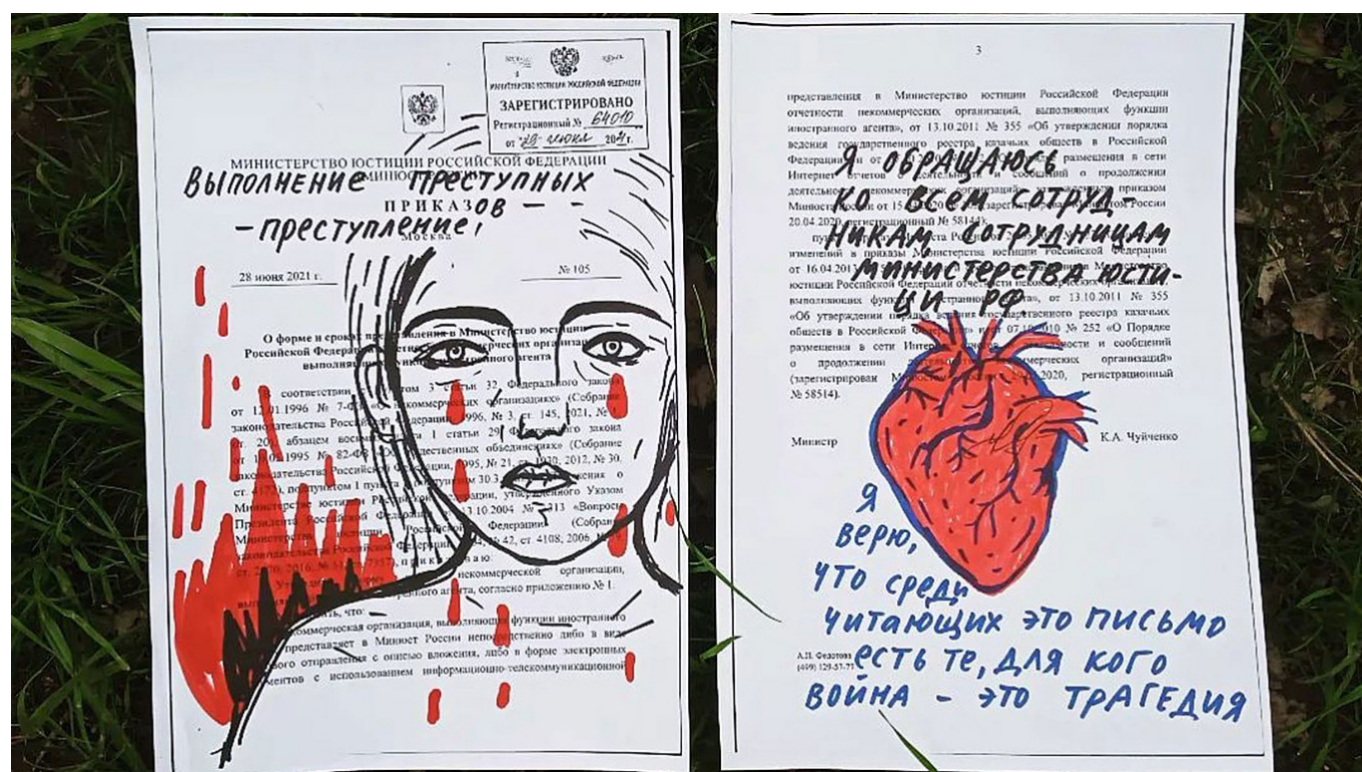 МИНИСТЕРСТВО ЮСТИЦИИ РОССИЙСКОЙ ФЕДЕРАЦИИ
ЗАРЕГИСТРИРОВАНО
Регистрационный № 64010
от
МИНИСТЕРСТВО ЮСТИЦИИ РОССИЙСКОЙ ФЕДЕРАЦИИ
ВЫПОЛНЕНИЕ ПРЕСТУПНЫХ
ПРИКАЗОВ —
- ПРЕСТУПЛЕНИЕ,
Москва
28 июня 2021 г.
№ 105
О форме и сроках представления в Министерство юстиции
Российской Федерации
В соответствии
от 12.01.1996 № 7-ФЗ некоммерческих организациях» (Собрание
законодательства Российской Федерации, 1996, № 3, ст. 145, 2021, №
ст. 20 абзацем части 1 статьи 29 Федерального закона
от 19.05.1995 № 82-ФЗ «Об общественных объединениях» (Собрание
законодательства Российской Федерации, 1995, № 21, ст. 1930, 2012, № 30,
ст. 4172), подпунктом 1 пункта 30.3
Министерстве юстиции Российской Федерации, утвержденного Указом
Президента Российской 13.10.2004 № 1313 «Вопросы
Министерства юстиции Российской Федерации» (Собрание
законодательства Российской Федерации, № 42, ст. 4108; 2006,
п р и к а з ы в а ю:
некоммерческой организации,
агента, согласно приложению № 1.
что:
некоммерческая организация, выполняющая функции иностранного
представляет в Минюст России непосредственно либо в виде
отправления с описью вложения, либо в форме электронных
ментов с использованием информационно-телекоммуникационной
3
представления в Министерство юстиции Российской Федерации
отчетности некоммерческих организаций, выполняющих функции
иностранного агента», от 13.10.2011 № 355 «Об утверждении порядка
ведения государственного реестра казачьих обществ в Российской
Федерации» и от размещения в сети
Интернет отчетов о деятельности и сообщений о продолжении
деятельности некоммерческих организаций» приказом
Минюста России от
20.04.2020, регистрационный № 58144);
Я ОБРАЩАЮСЬ
КО ВСЕМ СОТРУД-
НИКАМ, СОТРУДНИЦАМ
МИНИСТЕРСТВА ЮСТИ-
ЦИИ РФ
изменений в приказы Министерства юстиции Российской Федерации
от 16.04.201
юстиции Российской Федерации отчетности некоммерческих организаций,
выполняющих функции иностранного агента», от 13.10.2011 № 355
«Об утверждении порядка ведения государственного реестра казачьих
обществ в Российской Федерации» и от № 252 «О Порядке
размещения в сети Интернет отчетов о деятельности и сообщений
о продолжении деятельности некоммерческих организаций»
(зарегистрирован Минюстом 2020, регистрационный
№ 58514).
Министр К.А. Чуйченко
Я
ВЕРЮ,
ЧТО СРЕДИ
ЧИТАЮЩИХ ЭТО ПИСЬМО
ЕСТЬ ТЕ, ДЛЯ КОГО
ВОЙНА – ЭТО ТРАГЕДИЯ
А.П. Федотова
(499) 129-57-71